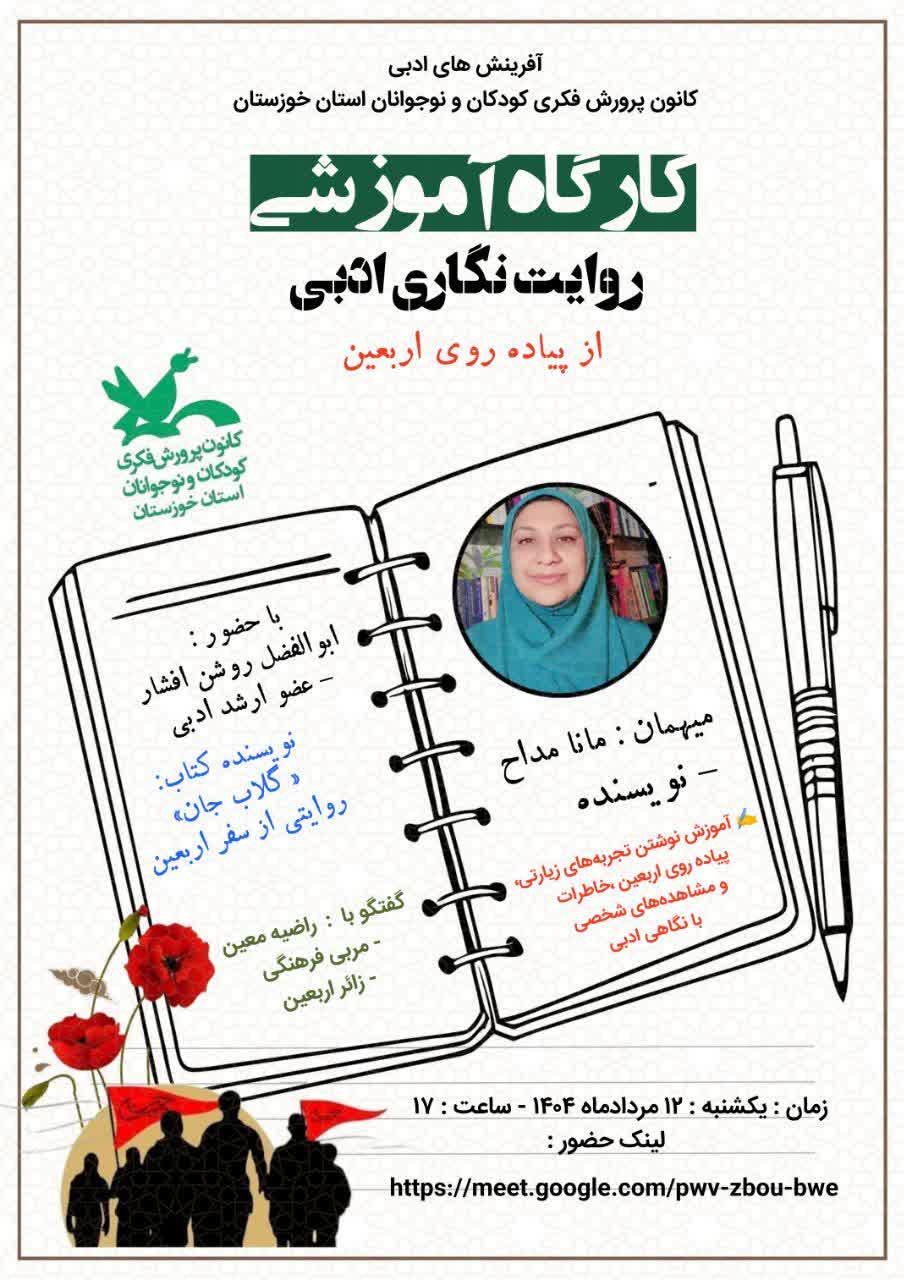 آفرینش های ادبی
کانون پرورش فکری کودکان و نوجوانان استان خوزستان
کارگاه آموزشی
روایت نگاری ادبی
از پیاده روی اربعین
کانون پرورش فکری
کودکان و نوجوانان
استان خوزستان
با حضور :
ابوالفضل روشن افشار
- عضو ارشد ادبی
نویسنده کتاب:
« گلاب جان»
روایتی از سفر اربعین
گفتگو با : راضیه معین
- مربی فرهنگی
- زائر اربعین
میهمان : مانا مداح
- نویسنده
✍️ آموزش نوشتن تجربه‌های زیارتی،
پیاده روی اربعین ،خاطرات
و مشاهده‌های شخصی
با نگاهی ادبی
زمان : یکشنبه : ۱۲ مردادماه ۱۴۰۴ - ساعت : ۱۷
لینک حضور :
https://meet.google.com/pwv-zbou-bwe